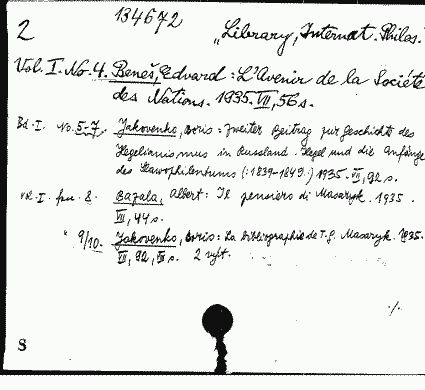 134672
2 „Library, Internat. Philos.
Vol. I. No. 4. Beneš, Edvard: L'Avenir de la Société
des Nations. 1935. VII, 56 s.
Bd. I. No. 5-7. Jakovenko, Boris: Zweiter Beitrag zur Geschichte des
Hegelianismus in Russland. Hegel und die Anfänge
des Slawophilentums (:1839-1849:) 1935. VII, 92 s.
Vol. I. fasc. 8. Bazala, Albert: Il pensiero di Masaryk. 1935.
VII, 44 s.
" 9/10. Jakovenko, Boris: La bibliographie de T. G. Masaryk. 1935.
VII, 92, s. 2 výt.
./.
8